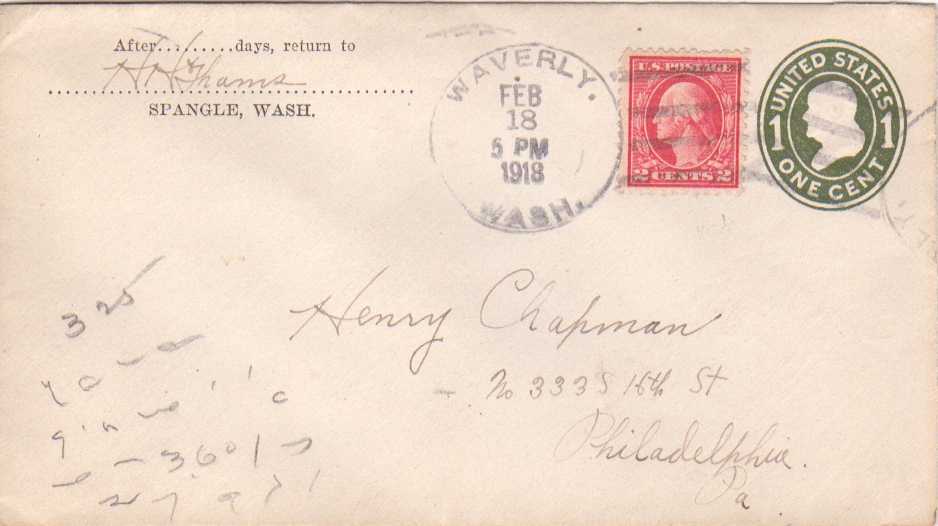 After.........days, return to
H H Thams
SPANGLE, WASH.
WAVERLY.
FEB
18
5 PM
1918
WASH.
U.S. POSTAGE
2 CENTS 2
UNITED STATES
1 1
ONE CENT
Henry Chapman
No 333 S 16th St
Philadelphia.
Pa
325